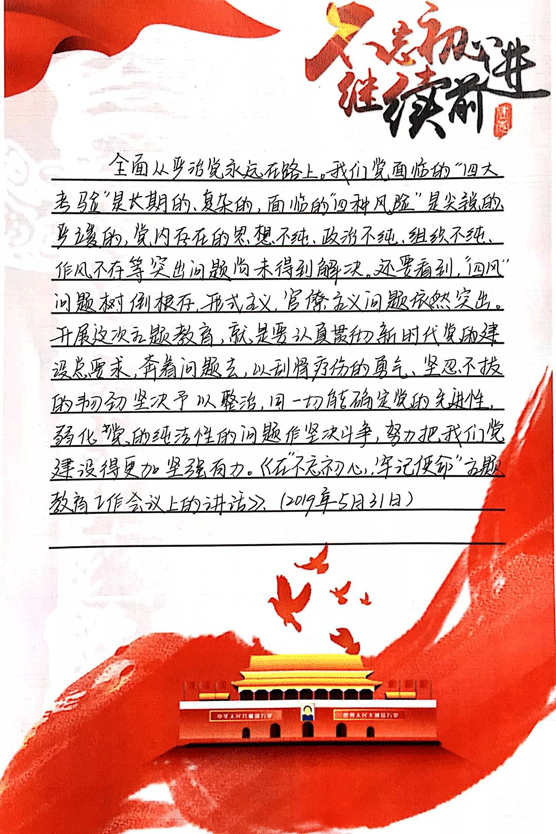 不忘初心
继续前进
全面从严治党永远在路上。我们党面临的“四大
考验”是长期的、复杂的，面临的“四种风险”是尖锐的
严峻的，党内存在的思想不纯、政治不纯、组织不纯、
作风不存等突出问题尚未得到解决。还要看到，“四风”
问题树倒根存，形式主义，官僚主义问题依然突出。
开展这次主题教育，就是要认真贯彻新时代党的建
设总要求，奔着问题去，以刮骨疗伤的勇气、坚忍不拔
的韧劲坚决予以整治，同一切能确定党的先进性，
弱化党的纯洁性的问题作坚决斗争，努力把我们党
建设得更加坚强有力。《在“不忘初心，牢记使命”主题
教育工作会议上的讲话》、(2019年5月31日)
中华人民共和国万岁
世界人民大团结万岁